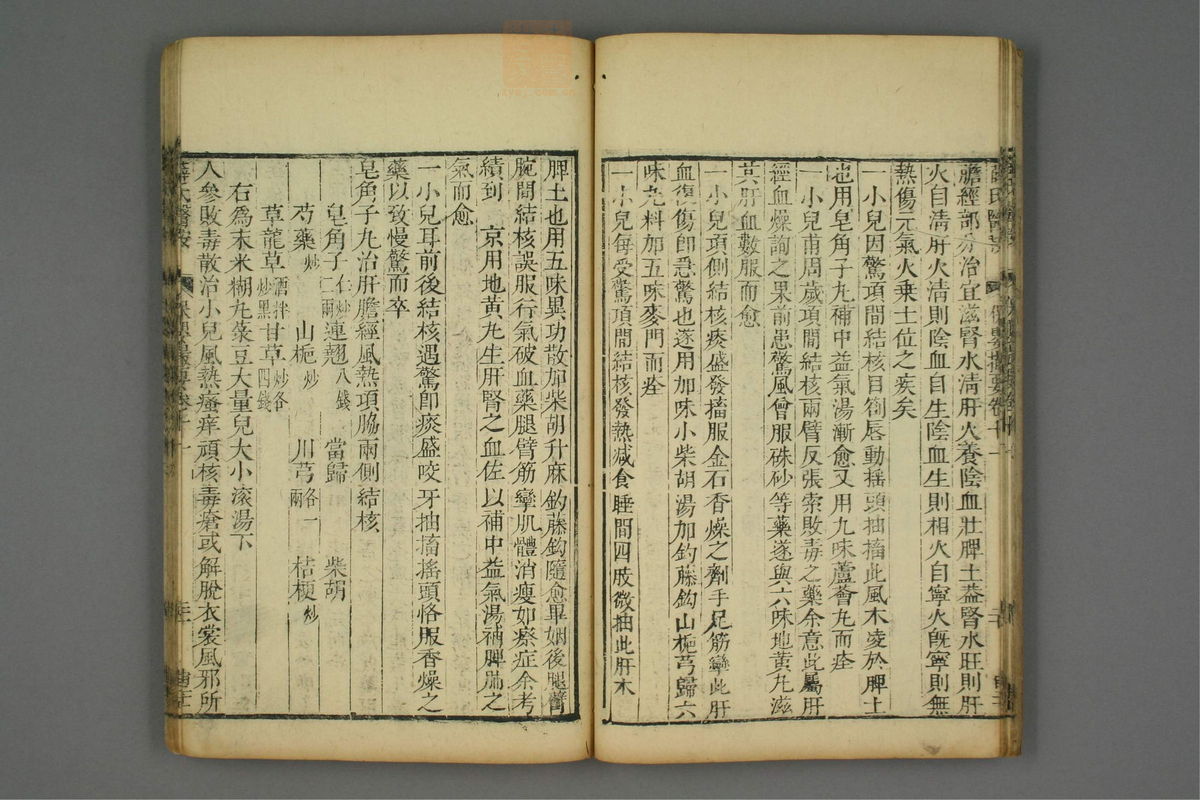 膽經部分治宜滋腎水清肝火養陰血壯脾土益腎水旺則肝
火自清肝火清則陰血自生陰血生則相火自寧火旣寧則無
熱傷元氣火乗土位之疾矣
一小兒因驚項間結核目劄唇動摇頭抽搐此風木凌於脾土
也用皂角子丸補中益氣湯漸愈又用九味蘆薈丸而痊
一小兒甫周歲項間結核兩臂反張索敗毒之藥余意此屬肝
經血燥詢之果前患驚風曾服硃砂等藥遂與六味地黃丸滋
其肝血數服而愈
一小兒項側結核痰盛發搐服金石香燥之劑手足筋攣此肝
血復傷卽急驚也遂用加味小柴胡湯加鈎藤鈎山梔芎歸六
味丸料加五味麥門而痊
一小兒每受驚項間結核發熱减食睡間四肢微抽此肝木
脾土也用五味異功散加柴胡升麻鈎藤鈎隨愈畢姻後腿臂
腕間結核誤服行氣破血藥腿臂筋攣肌體消瘦如瘵症余考
績到 京用地黃丸生肝腎之血佐以補中益氣湯補脾肺之
氣而愈
一小兒耳前後結核遇驚卽痰盛咬牙抽搐搖頭恪服香燥之
藥以致慢驚而卒
皂角子丸治肝膽經風熱項脇兩側結核
皂角子仁炒二兩 連翹八錢 當歸 柴胡
芍藥炒 山梔炒 川芎各一兩 桔梗炒
草龍草酒拌炒黑 甘草炒各四錢
右爲末米糊丸菉豆大量兒大小滚湯下
人參敗毒散治小兒風熱瘙痒頑核毒瘡或解脫衣裳風邪所
薛氏醫案